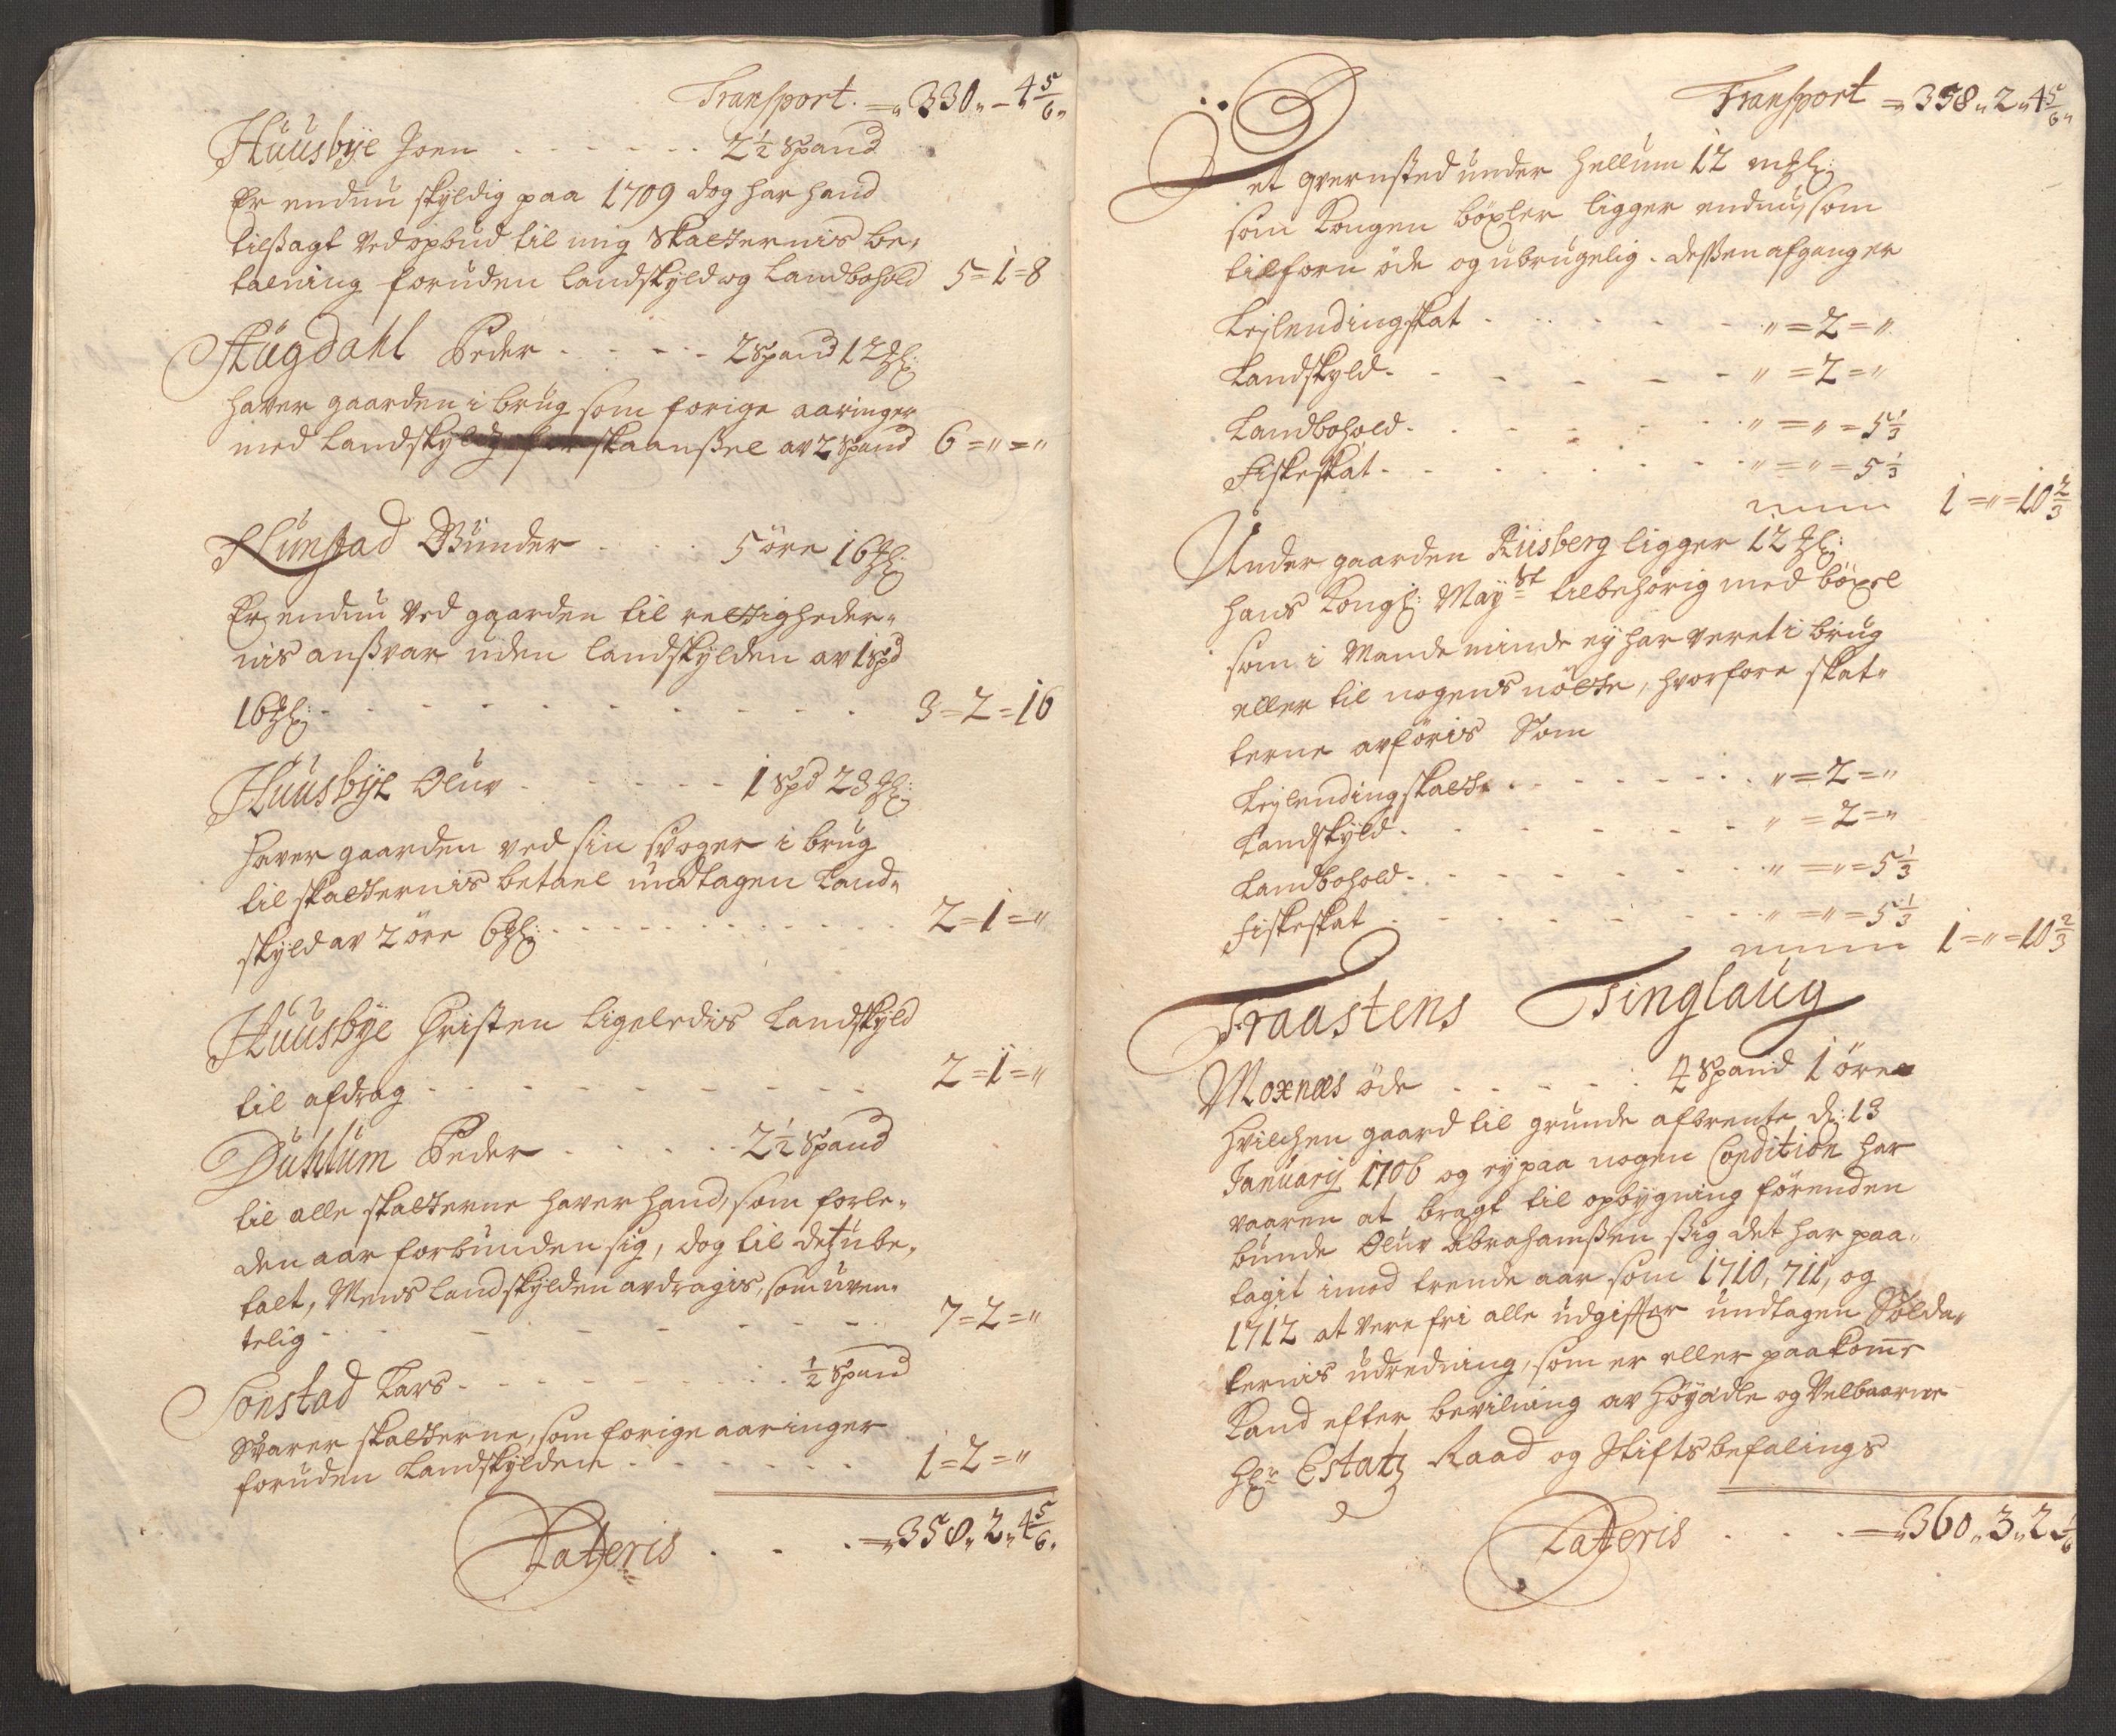 Transport. =„330„–„4 5/6„
Huusbye Joen . . . . . . 2 1/2 Spand
Er endnu skyldig paa 1709 dog har hand
tilsagt ved opbud til mig Skatternis be,
talning foruden landskyld og Landbohold 5=1=8
Hugdahl Peder . . . . . 2 Spand 12 
haver gaarden i brug som forige aaringer
med Landskyld skaanssel av 2 Spand 6=„=„
Hunstad Gunder . . . . 5 öre 16
Er endnu ved gaarden til rettigheder„
nis anssvar uden landskylden av 1 Spd
16 . . . . . . . . . . . 3=2=16
Huusbye Oluv . . . . . . 1 Spd 23
haver gaarden ved sin svoger i brug
til skatternis betael undtagen Land„
skyld av 2 öre 6 . . . . . . . . . . 2=1=„
Huusbye Christen ligeledis Landskyld
til afdrag . . . . . . . . . 2=1=„
Duhlum Peder . . . . . 2 1/2 Spand
til alle skatterne haver hand, som forle„
den aar forbunden sig, dog til detz ube„
talt, Mens landskylden avdragis, som uven„
telig . . . . . . . . . 7=2=„
Sonstad Lars . . . . . . . . 1/2 Spand
Svarer skatterne, som forige aaringer
foruden Landskylden . . . . . . 1=2=„
Latteris . . . =„358„2„4 5/6„
Transport =„358„2„4 5/6„
Et qvernsted under Hellum 12 
som Kongen böxler, ligger endnu, som
tilforn öde og ubrugelig. dessen afgang er
Leylendingskat . . . . . . „=2=„
Landskyld . . . . . . „=2=„
Landbohold . . . . . . „=„=5 1/3
Fiskeskat . . . . . . „=„=5 1/3
1=„=10 2/3
Under gaarden Riisberg ligger 12
hans Kongl: Mayst tilbehörig med böxel
som i Mande minde ey har veret i brug
eller til nogens nötte, hvorfore skat„
terne avföris Som
Leylendingskatt . . . . . . „=2=„
Landskyld . . . . . . „=2=„
Landbohold . . . . . . „=„=5 1/3
Fiskeskat . . . . . . „=„=5 1/3
1=„=10 2/3
Fraastens Tinglaug
Moxnæs öde . . . . . 4 Spand 1 öre
hvilchen gaard til grunde afbrente d: 13
January 1706 og ey paa nogen Condition har
vaaren at bragt til opbygning förenden
bunde Oluv Abrahamssen ssig det har paa„
tagit imod trende aar som 1710, 711, og
1712 at vere fri alle udgiffter undtagen Solda„
ternis udredning, som er eller paakome
Kand efter bevilning av Höyædle og Velbaarne
Hr Estatz Raad og Stiftsbefalings
Latteris . . . =„360„3„2 1/6